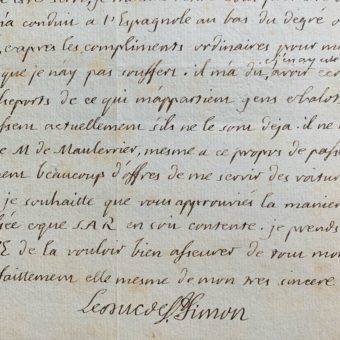 ma conduit a l'Espagnole au bas du degré
, & apres les compliments ordinaires pour m
que je n'ay pas souffert. il m'a du avoir
seports de ce qui m'appartient gens & balots
ssent actuellement s'ils ne le sont deja. il ne
e M de Maulevrier, mesme a ce propos de passe
ment beaucoup d'offres de me servir des voitur
je souhaitte que vous approuviés la manier
iée & que S.A.R en soit contente. je prends
E de la vouloir bien asseurer de tout mo
faittement elle mesme de mon tres sincere
Le duc de St Simon